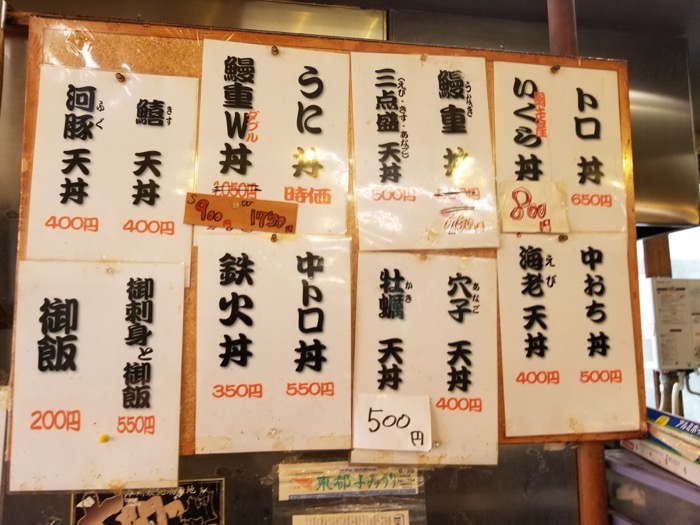 トロ丼
650円
いくら丼
網走産
800円
鰻重丼
うなぎ
三点盛天丼
(えび・きす・あなご)
500円
うに丼
時価
鰻重W丼
ダブル
1050円
900
1750円
鱚天丼
きす
400円
河豚天丼
ふぐ
400円
中おち丼
500円
海老天丼
えび
400円
穴子天丼
あなご
400円
牡蠣天丼
かき
500円
中トロ丼
550円
鉄火丼
350円
御刺身と御飯
550円
御飯
200円
東都よみうり